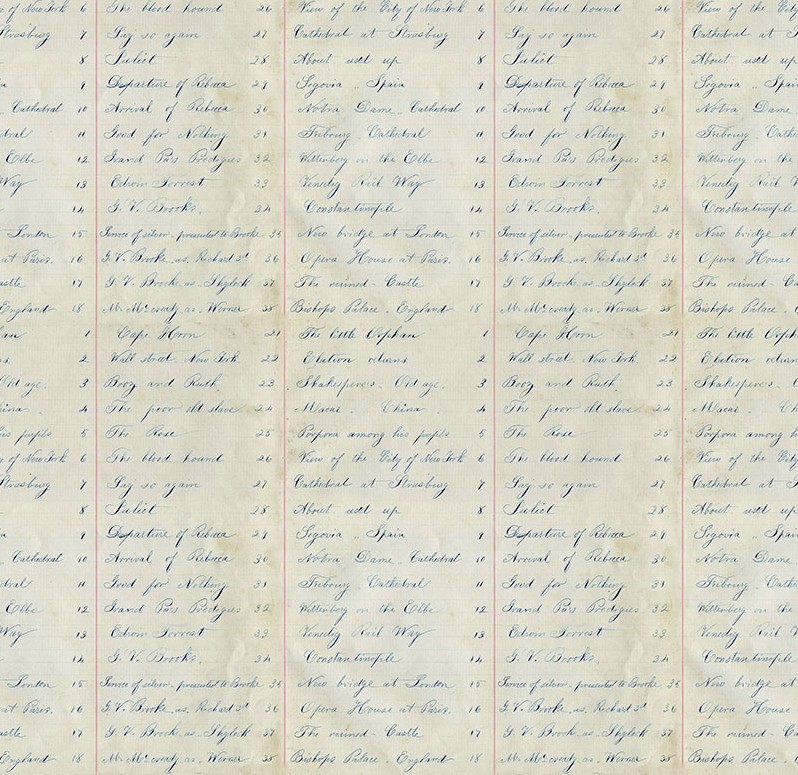 of New York 6 The blood hound 26 View of the City of New York 6 The blood hound 26 View of the City of New York
Strasburg 7 Say so again 27 Cathedral at Strasburg 7 Say so again 27 Cathedral at
8 Juliet 28 About used up 8 Juliet 28 About used up
9 Departure of Rebecca 29 Segovia .. Spain 9 Departure of Rebecca 29 Segovia .. Spain
Cathedral 10 Arrival of Rebecca 30 Notra Dame .. Cathedral 10 Arrival of Rebecca 30 Notra Dame ..
11 Good for Nothing 31 Fribourg .. Cathedral 11 Good for Nothing 31 Fribourg ..
Elbe 12 Grand Pa's Prodigies 32 Wittenberg on the Elbe 12 Grand Pa's Prodigies 32 Wittenberg on the
Way 13 Edwin Forrest 33 Venedig Rail Way 13 Edwin Forrest 33 Venedig Rail
14 G. V. Brooke. 34 Constantinople 14 G. V. Brooke. 34 Constantinople
London 15 Service of silver . presented to Brooke 35 New bridge at London 15 Service of silver . presented to Brooke 35 New bridge at
at Paris. 16 G. V. Brooke .as. Richard 3rd 36 Opera House at Paris. 16 G. V. Brooke .as. Richard 3rd 36 Opera House
17 G. V. Brooke as . Shylock 37 The ruined - Castle 17 G. V. Brooke as . Shylock 37 The ruined -
England 18 Mr McCready as . Werner 38 Bishops Palace . England 18 Mr McCready as . Werner 38 Bishops Palace .
1 Cape Horn 21 The little Orphan 1 Cape Horn 21 The little Orphan
2 Wall street . New York 22 Election returns 2 Wall street . New York 22 Election returns
Old age. 3 Booz and Ruth 23 Shakespere's . Old age. 3 Booz and Ruth 23 Shakespere's . Old
China . 4 The poor old slave 24 Macao . China . 4 The poor old slave 24 Macao .
his pupils 5 The Rose 25 Porpora among his pupils 5 The Rose 25 Porpora among
of New York 6 The blood hound 26 View of the City of New York 6 The blood hound 26 View of the City of New York
Strasburg 7 Say so again 27 Cathedral at Strasburg 7 Say so again 27 Cathedral at
8 Juliet 28 About used up 8 Juliet 28 About used up
9 Departure of Rebecca 29 Segovia .. Spain 9 Departure of Rebecca 29 Segovia .. Spain
Cathedral 10 Arrival of Rebecca 30 Notra Dame .. Cathedral 10 Arrival of Rebecca 30 Notra Dame ..
11 Good for Nothing 31 Fribourg .. Cathedral 11 Good for Nothing 31 Fribourg ..
Elbe 12 Grand Pa's Prodigies 32 Wittenberg on the Elbe 12 Grand Pa's Prodigies 32 Wittenberg on the
Way 13 Edwin Forrest 33 Venedig Rail Way 13 Edwin Forrest 33 Venedig Rail
14 G. V. Brooke. 34 Constantinople 14 G. V. Brooke. 34 Constantinople
London 15 Service of silver . presented to Brooke 35 New bridge at London 15 Service of silver . presented to Brooke 35 New bridge at
at Paris. 16 G. V. Brooke .as. Richard 3rd 36 Opera House at Paris. 16 G. V. Brooke .as. Richard 3rd 36 Opera House
17 G. V. Brooke as . Shylock 37 The ruined - Castle 17 G. V. Brooke as . Shylock 37 The ruined -
England 18 Mr McCready as . Werner 38 Bishops Palace . England 18 Mr McCready as . Werner 38 Bishops Palace .